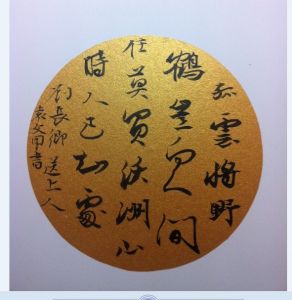 孤雲將野
鶴豈向人間
住莫買沃洲山
時人已知處
劉長卿送上人
袁文甲書